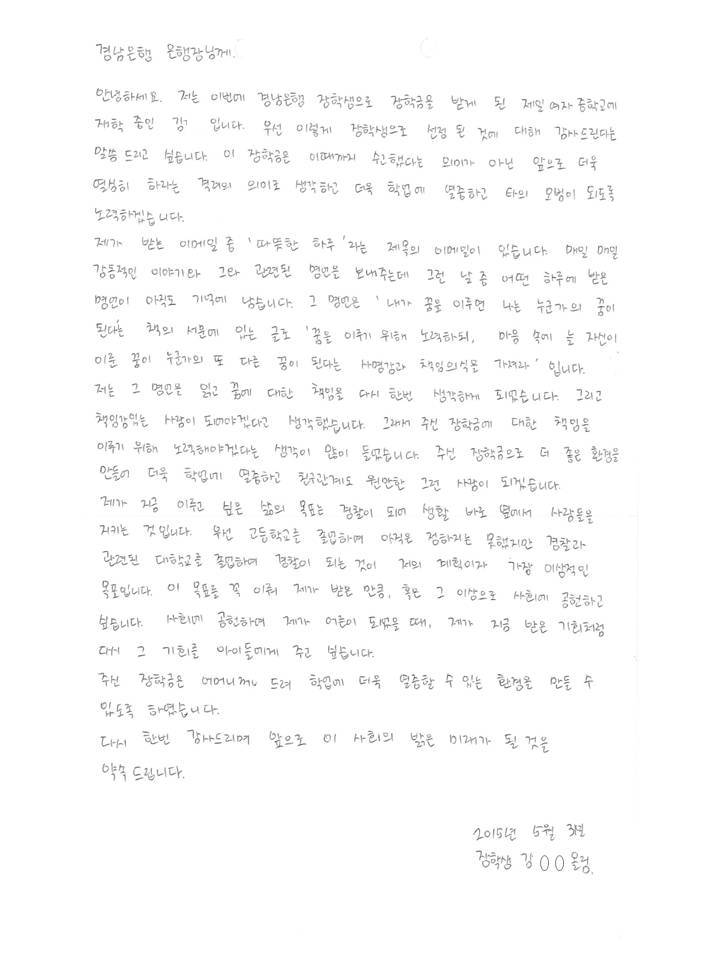 경남은행 은행장님께.
안녕하세요. 저는 이번에 경남은행 장학생으로 장학금을 받게 된 제일여자중학교에
재학 중인 입니다. 우선 이렇게 장학생으로 선정 된 것에 대해 감사드린다는
말씀 드리고 싶습니다. 이 장학금은 이때까지 수고했다는 의미가 아닌 앞으로 더욱
열심히 하라는 격려의 의미로 생각하고 더욱 학업에 열중하고 타의 모범이 되도록
노력하겠습니다.
제가 받는 이메일 중 '따뜻한 하루'라는 제목의 이메일이 있습니다. 매일 매일
감동적인 이야기와 그와 관련된 명언을 보내주는데 그런 날 중 어떤 하루에 받은
명언이 아직도 기억에 남습니다. 그 명언은 '내가 꿈을 이루면 나는 누군가의 꿈이
된다'는 책의 서문에 있는 글로 '꿈을 이루기 위해 노력하되, 마음 속에 늘 자신이
이룬 꿈이 누군가의 또 다른 꿈이 된다는 사명감과 책임의식을 가져라' 입니다.
저는 그 명언을 읽고 꿈에 대한 책임을 다시 한번 생각하게 되었습니다. 그리고
책임감있는 사람이 되어야겠다고 생각했습니다. 그래서 주신 장학금에 대한 책임을
이루기 위해 노력해야겠다는 생각이 많이 들었습니다. 주신 장학금으로 더 좋은 환경을
만들어 더욱 학업에 열중하고 친구관계도 원만한 그런 사람이 되겠습니다.
제가 지금 이루고 싶은 삶의 목표는 경찰이 되어 생활 바로 옆에서 사람들을
지키는 것입니다. 우선 고등학교를 졸업하며 아직은 정하지는 못했지만 경찰과
관련된 대학교를 졸업하여 경찰이 되는것이 저의 계획이자 가장 이상적인
목표입니다. 이 목표를 꼭 이뤄 제가 받은 만큼, 혹은 그 이상으로 사회에 공헌하고
싶습니다. 사회에 공헌하며 제가 어른이 되었을 때, 제가 지금 받은 기회처럼
다시 그 기회를 아이들에게 주고 싶습니다.
주신 장학금은 어머니께 드려 학업에 더욱 열중할 수 있는 환경을 만들 수
있도록 하였습니다.
다시 한번 감사드리며 앞으로 이 사회의 밝은 미래가 될 것을
약속 드립니다.
2015년 5월 31일
장학생 김○○올림.